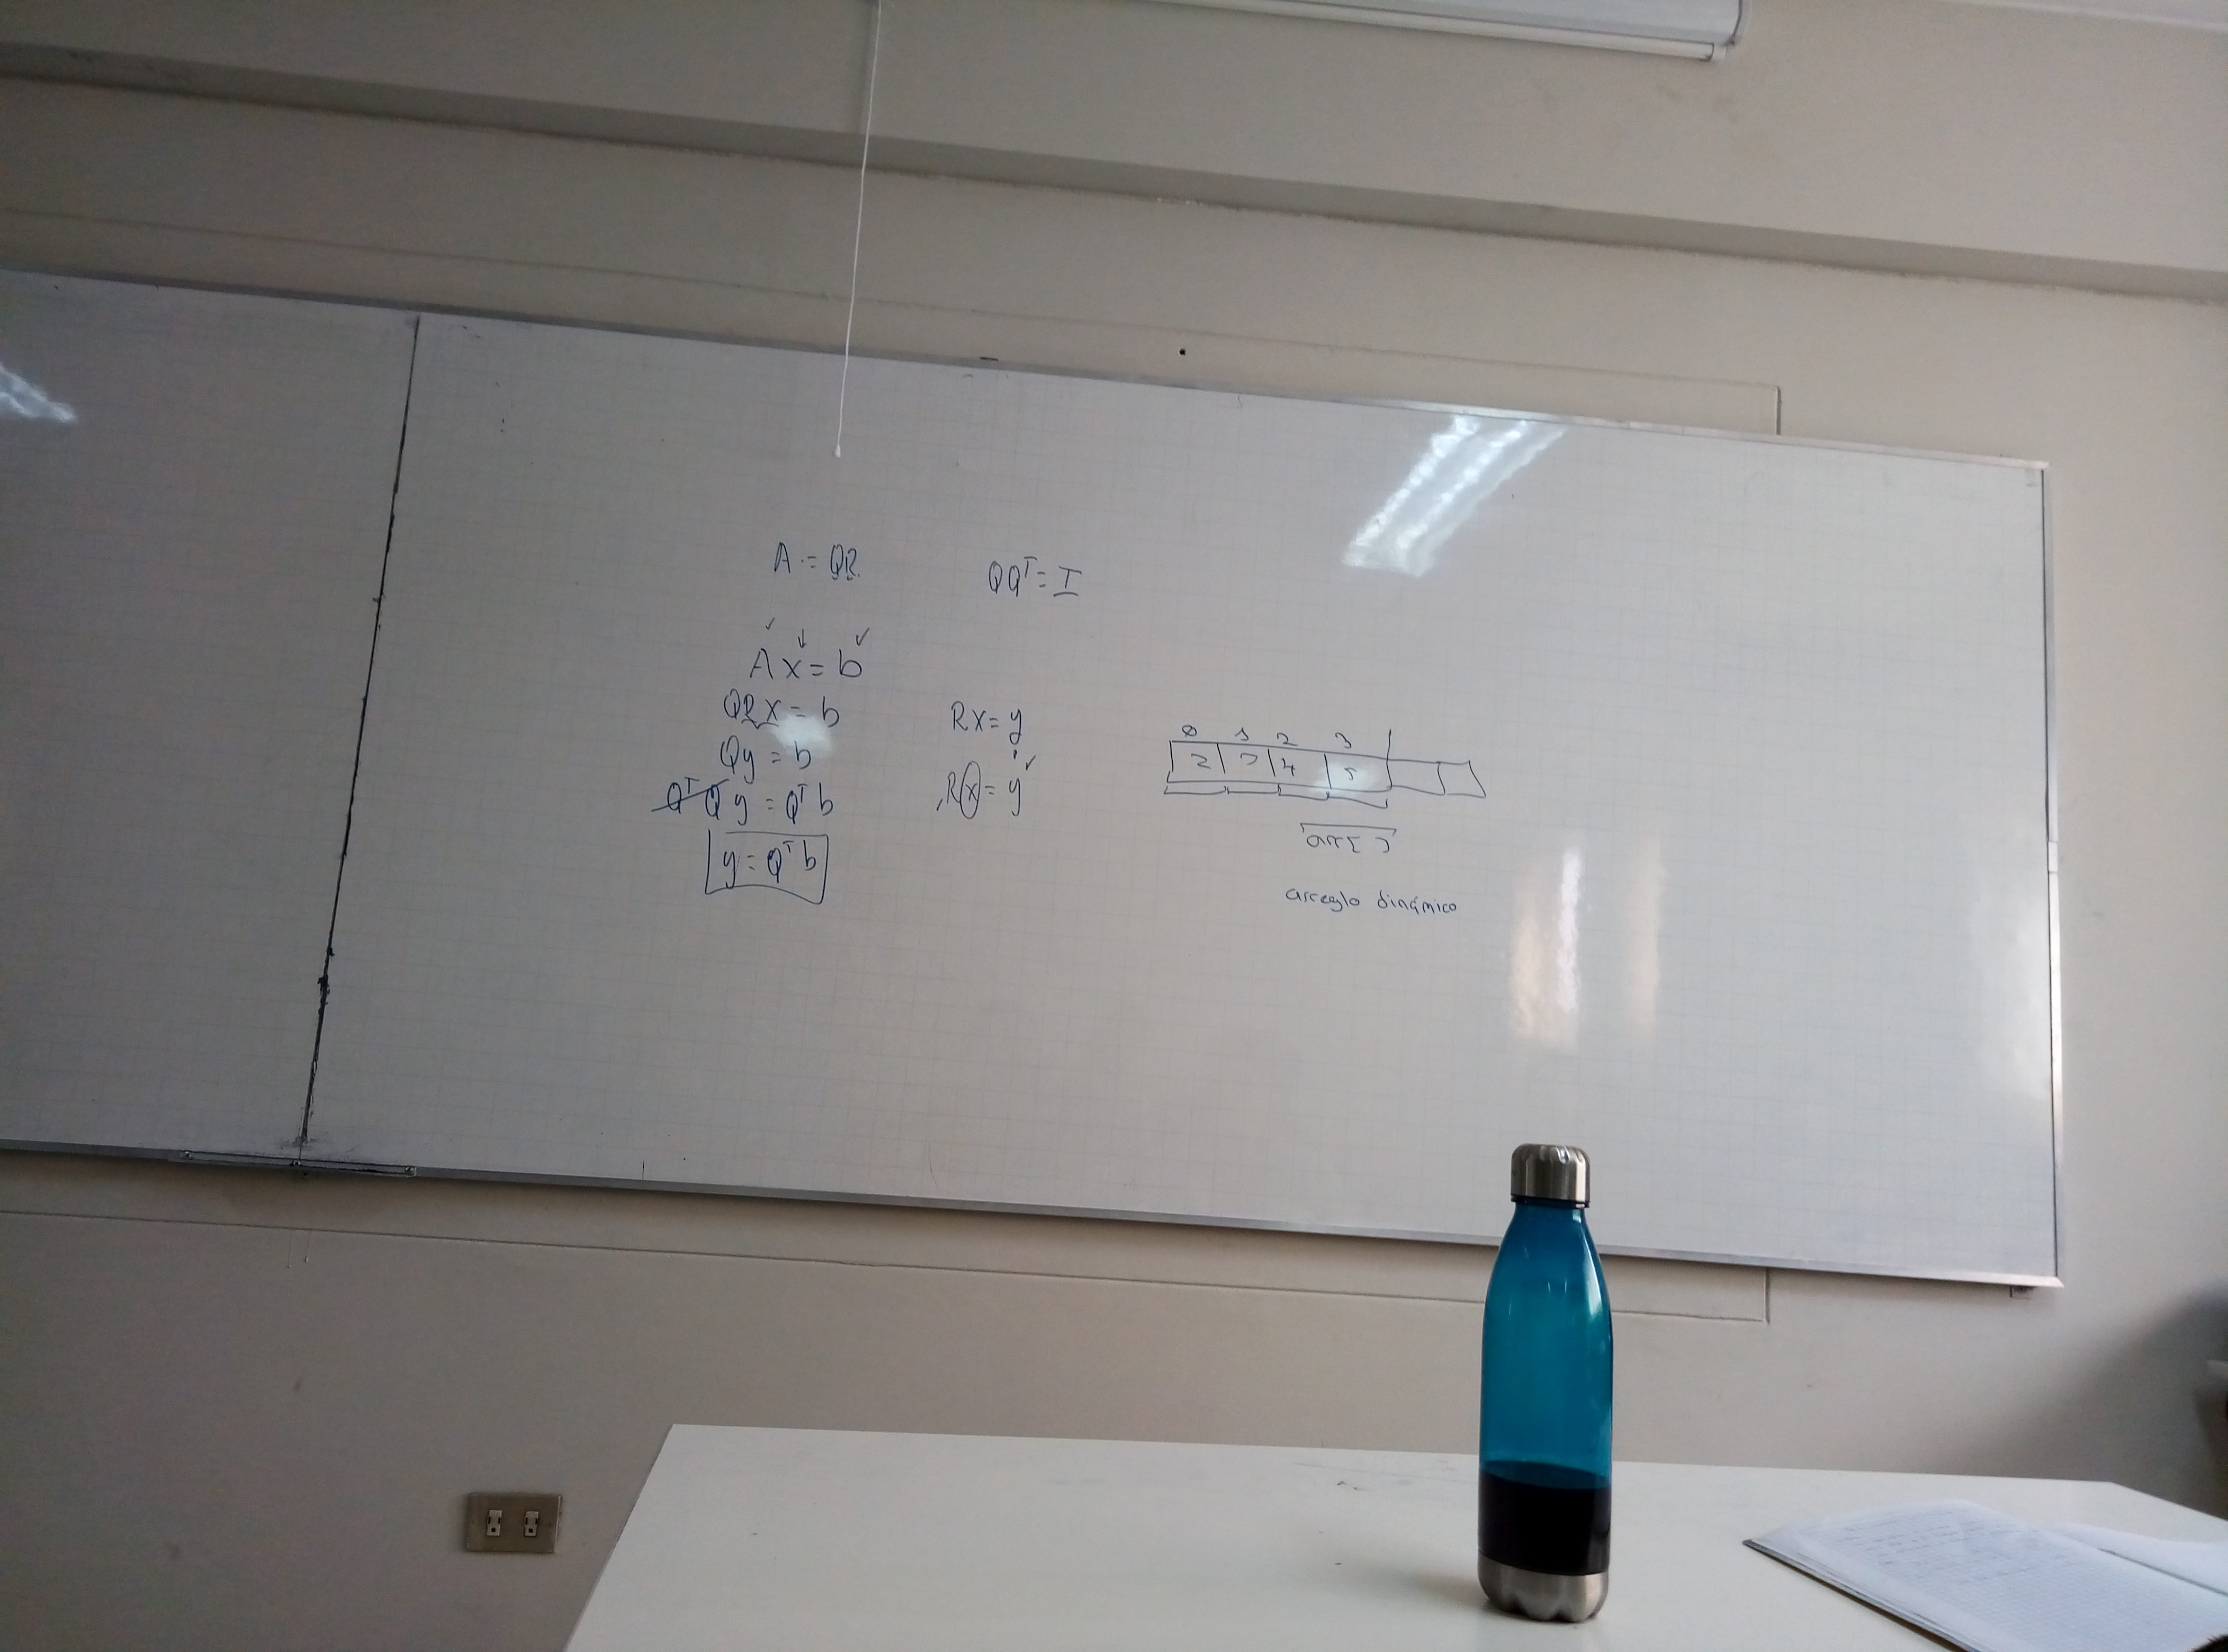 A = QR
QQᵀ = I
Ax = b
QRx = b
Qy = b
QᵀQy = Qᵀb
y = Qᵀb
Rx = y
Rx = y
0 1 2 3
2 3 4 5
arr[ ]
arreglo dinámico